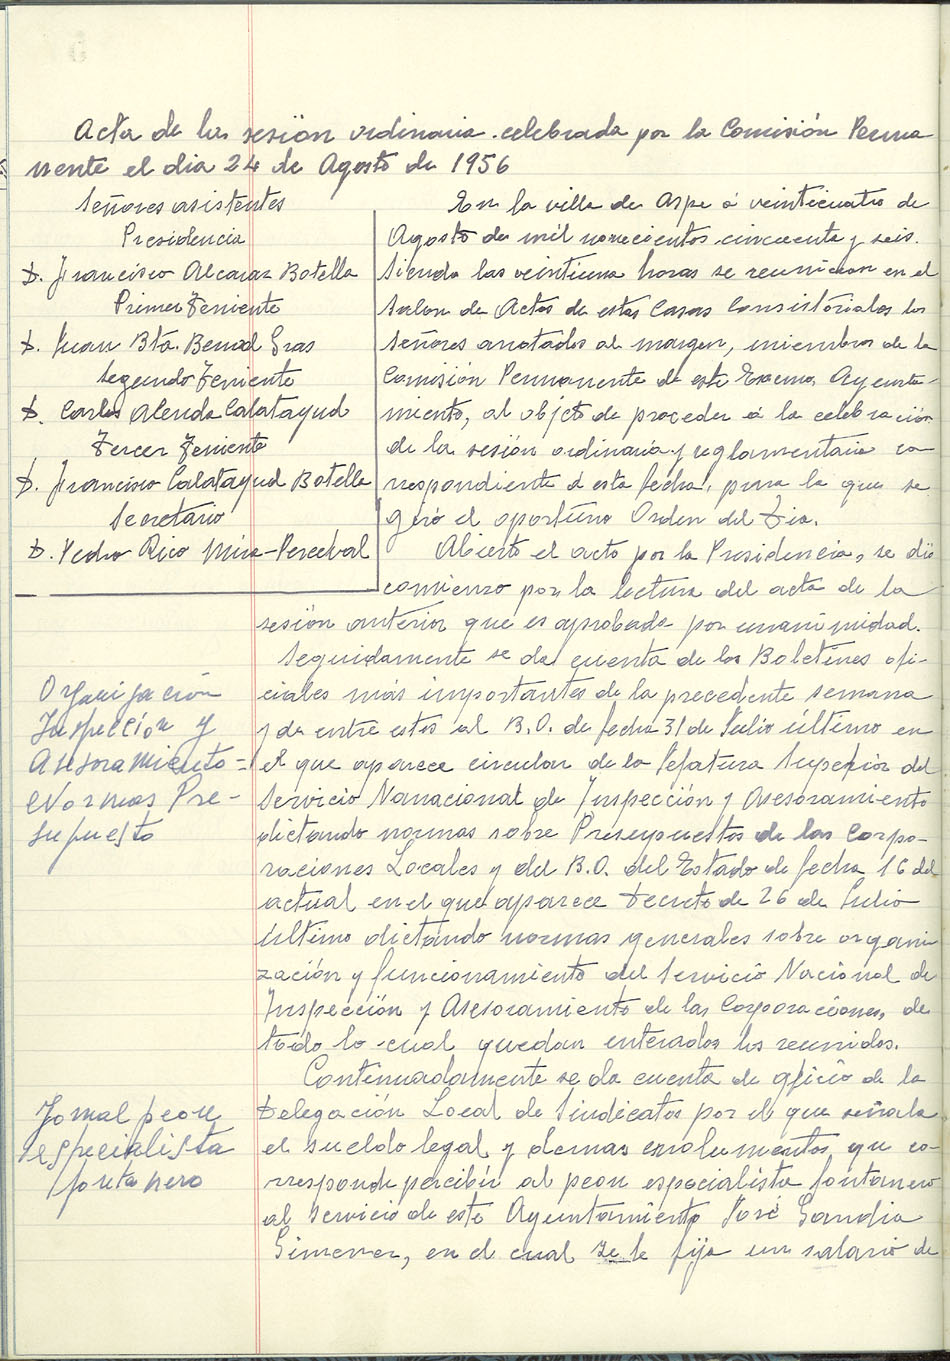 Acta de la sesión ordinaria celebrada por la Comisión Perma
nente el dia 24 de Agosto de 1956
Señores asistentes
Presidencia
D. Francisco Alcaraz Botella
Primer Teniente
D. Juan Bta. Benod Gras
Segundo Teniente
D. Carlos Alenda Calatayud
Tercer Teniente
D. Francisco Calatayud Botella
Secretario
D. Pedro Rico Mira-Perceval
En la villa de Aspe á veinticuatro de
Agosto de mil novecientos cincuenta y seis.
Siendo las veintiuna horas se reunieron en el
Salon de Actos de estas Casas Consistoriales los
señores anotados al margen, miembros de la
Comisión Permanente de este Excmo. Ayunta-
miento, al objeto de proceder á la celebración
de la sesión ordinaria y reglamentaria co
rrespondiente á esta fecha, para la que se
giró el oportuno Orden del Dia.
Abierto el acto por la Presidencia, se dió
comienzo por la lectura del acta de la
sesión anterior que es aprobada por unanimidad.
Seguidamente se da cuenta de los Boletines ofi-
ciales más importantes de la precedente semana
y de entre estos al B.O. de fecha 31 de Julio último en
el que aparece circular de la Jefatura Superior del
Servicio Nanacional de Inspección y Asesoramiento
dictando normas sobre Presupuestos de las Corpo-
raciones Locales y del B.O. del Estado de fecha 16 del
actual en el que aparece Decreto de 26 de Julio
último dictando normas generales sobre organi
zación y funcionamiento del Servicio Nacional de
Inspección y Asesoramiento de las Corporaciones, de
todo lo cual quedan enterados los reunidos.
Continuadamente se da cuenta de oficio de la
Delegación Local de Sindicatos por el que señala
el sueldo legal y demas emolumentos que co-
rresponde percibir al peon especialista fontanero
al servicio de este Ayuntamiento José Gandia
Gimenez, en el cual se le fija un salario de
Organización
Inspección y
Asesoramiento=
Normas Pre-
supuesto
Jornal peon
especialista
fontanero